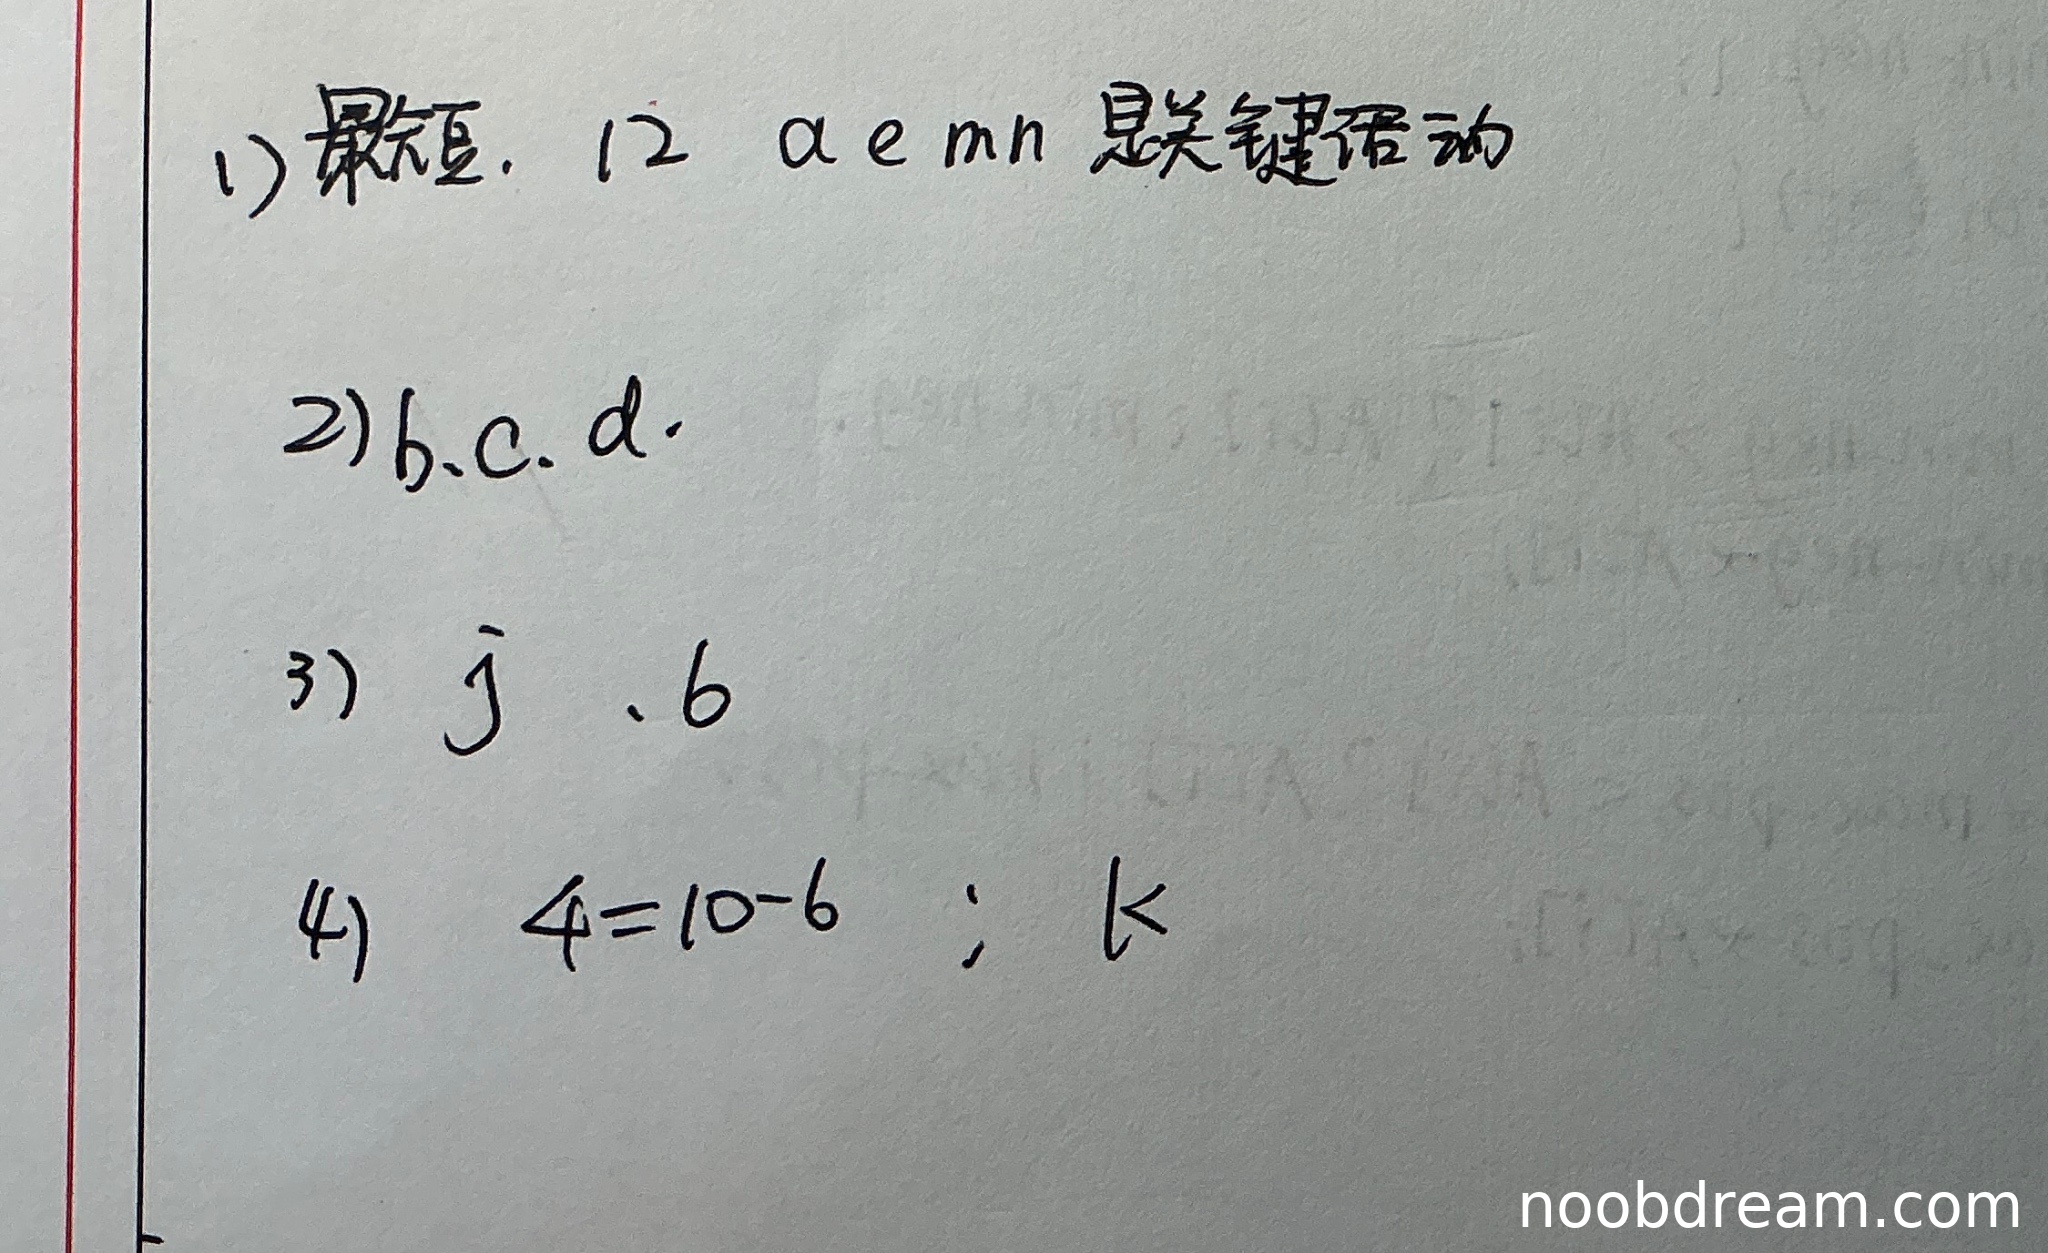 1) 最短. 12 a e m n 是关键活动
2) b. c. d.
3) j . 6
4) 4=10-6 ; k
noobdream.com